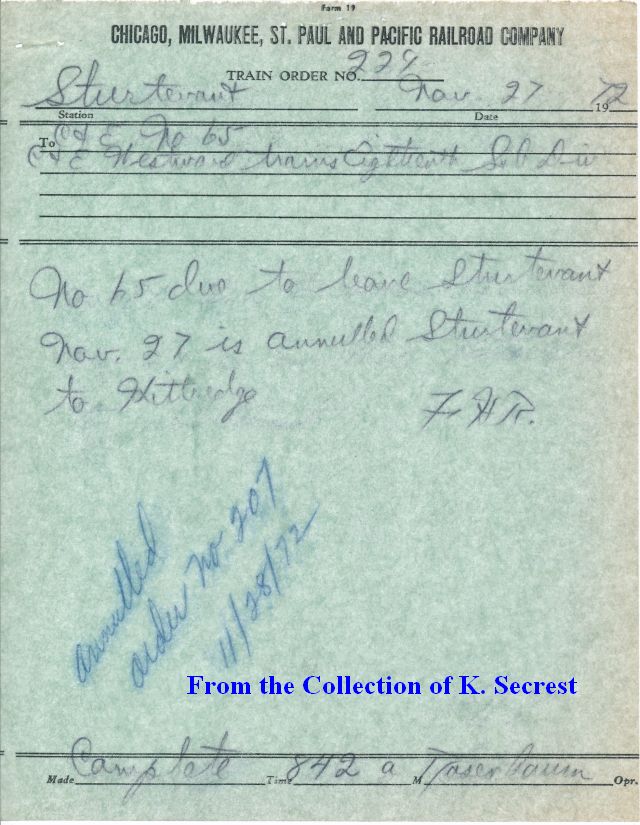 Form 19
CHICAGO, MILWAUKEE, ST. PAUL AND PACIFIC RAILROAD COMPANY
TRAIN ORDER NO. 224
Sturtevant Nov. 27 1972
Station Date
To C & E No 65
C & E Westward trains Eighteenth Sub Div
No 65 due to leave Sturtevant
Nov. 27 is annulled Sturtevant
to Kittredge F H R.
annulled
order no 207
11/28/72
From the Collection of K. Secrest
Made Complete Time 842 a M Rosenbaum Opr.